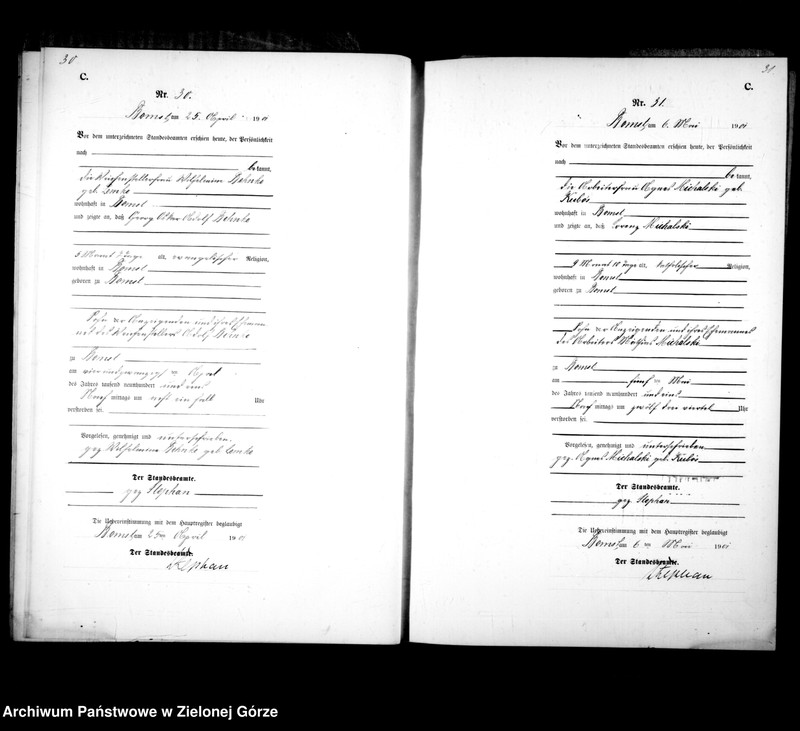 30
C.
Nr. 30.
Bomst am 25. April 1901
Vor dem unterzeichneten Standesbeamten erschien heute, der Persönlichkeit
nach
bekannt,
die Wilhelmine Behnke
geb. Lemke
wohnhaft in Bomst
und zeigte an, daß Georg Oskar Adolf Behnke
5 Monat 7 Tage alt, evangelischer Religion,
wohnhaft in Bomst
geboren zu Bomst
Sohn der Anzeigenden und ihres Ehemannes
des Adolf Behnke
zu Bomst
am vierundzwanzigsten April
des Jahres tausend neunhundert und eins
Nachmittags um acht ein halb Uhr
verstorben sei.
Vorgelesen, genehmigt und unterschrieben.
gez Wilhelmine Behnke geb Lemke
Der Standesbeamte.
gez Stephan
Die Uebereinstimmung mit dem Hauptregister beglaubigt
Bomst am 25ten April 1901
Der Standesbeamte.
Stephan
31
C.
Nr. 31.
Bomst am 6. Mai 1901
Vor dem unterzeichneten Standesbeamten erschien heute, der Persönlichkeit
nach
bekannt,
die Arbeiterfrau Agnes Michalski geb.
Kubos
wohnhaft in Bomst
und zeigte an, daß Lorenz Michalski
9 Monat 10 Tage alt, katholischer Religion,
wohnhaft in Bomst
geboren zu Bomst
Sohn der Anzeigenden und ihres Ehemannes
des Arbeiters Michalski
zu Bomst
am fünften Mai
des Jahres tausend neunhundert und eins
Nachmittags um zwölf drei viertel Uhr
verstorben sei.
Vorgelesen, genehmigt und unterschrieben
gez. Agnes Michalski geb. Kubos
Der Standesbeamte.
gez. Stephan
Die Uebereinstimmung mit dem Hauptregister beglaubigt
Bomst am 6ten Mai 1901
Der Standesbeamte.
Stephan
Archiwum Państwowe w Zielonej Górze